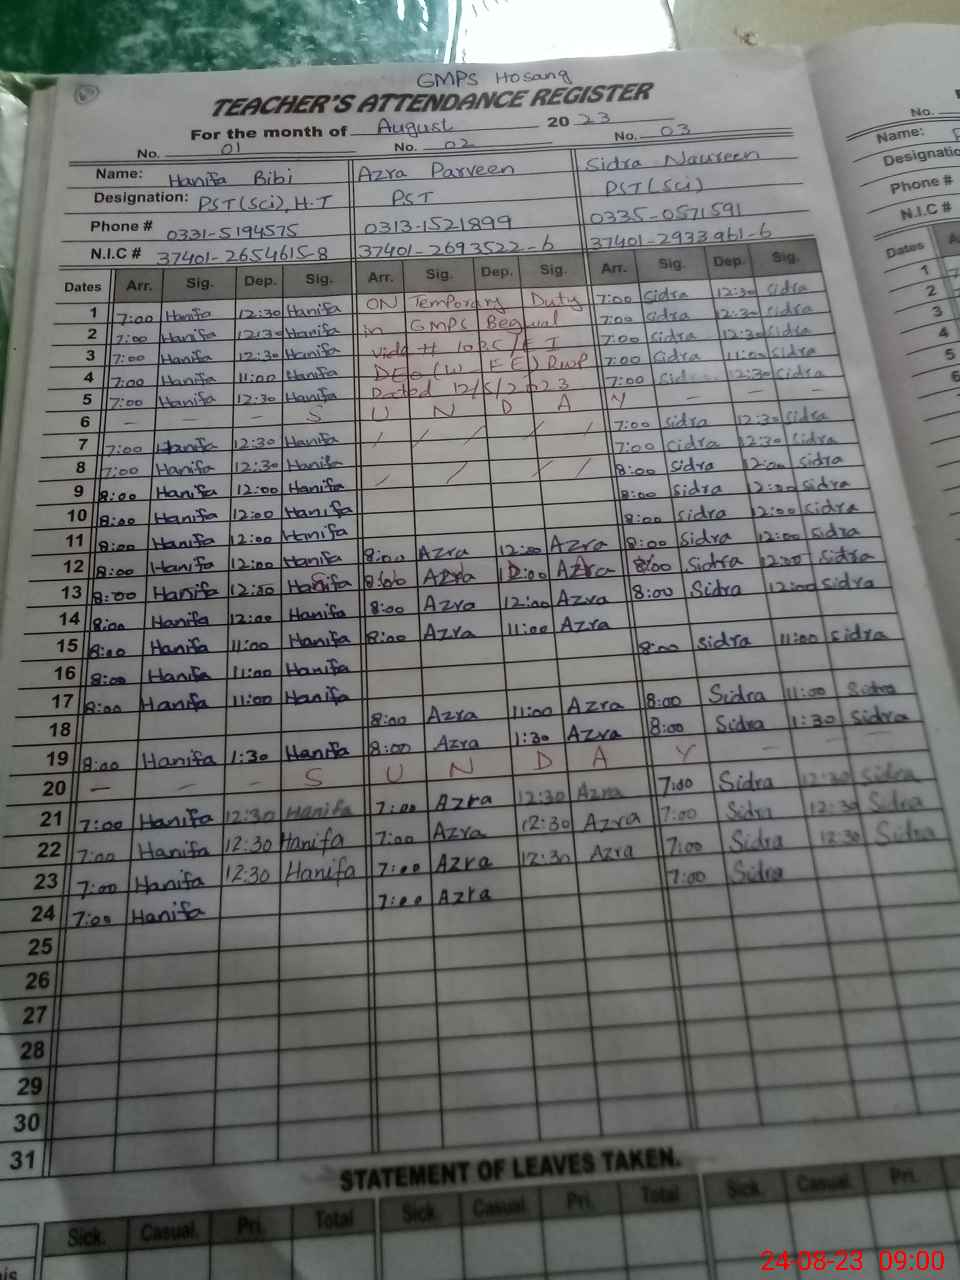 GMPS Hosang
TEACHER'S ATTENDANCE REGISTER
For the month of August 2023
No. 01 No. 02 No. 03
Name: Hanifa Bibi Azra Parveen Sidra Naureen
Designation: PST(Sci), H.T PST PST(Sci)
Phone # 0331-5194575 0313-1521899 0335-0571591
N.I.C # 37401-2654615-8 37401-2693522-6 37401-2933961-6
Dates Arr. Sig. Dep. Sig. Arr. Sig. Dep. Sig. Arr. Sig. Dep. Sig.
1 7:00 Hanifa 12:30 Hanifa ON Temporary Duty 7:00 Sidra 12:30 Sidra
2 7:00 Hanifa 12:30 Hanifa in GMPS 7:00 Sidra 12:30 Sidra
3 7:00 Hanifa 12:30 Hanifa 7:00 Sidra 12:30 Sidra
4 7:00 Hanifa 11:00 Hanifa DEO (W-EE) RWP 7:00 Sidra 11:00 Sidra
5 7:00 Hanifa 12:30 Hanifa Dated 12/5/2023 7:00 Sid 12:30 Sidra
6 – – – S U N D A Y – – –
7 7:00 Hanifa 12:30 Hanifa / / / / / 7:00 Sidra 12:30 Sidra
8 7:00 Hanifa 12:30 Hanifa 7:00 Sidra 12:30 Sidra
9 8:00 Hanifa 12:00 Hanifa / / / / 8:00 Sidra 12:00 Sidra
10 8:00 Hanifa 12:00 Hanifa 8:00 Sidra 12:00 Sidra
11 8:00 Hanifa 12:00 Hanifa 8:00 Sidra 12:00 Sidra
12 8:00 Hanifa 12:00 Hanifa 8:00 Azra 12:00 Azra 8:00 Sidra 12:00 Sidra
13 8:00 Hanifa 12:00 Hanifa 8:00 Azra 12:00 Azra 8:00 Sidra 12:00 Sidra
14 8:00 Hanifa 12:00 Hanifa 8:00 Azra 12:00 Azra 8:00 Sidra 12:00 Sidra
15 8:00 Hanifa 11:00 Hanifa 8:00 Azra 11:00 Azra
16 8:00 Hanifa 11:00 Hanifa 8:00 Sidra 11:00 Sidra
17 8:00 Hanifa 11:00 Hanifa
18 8:00 Azra 11:00 Azra 8:00 Sidra 11:00 Sidra
19 8:00 Hanifa 1:30 Hanifa 8:00 Azra 1:30 Azra 8:00 Sidra 1:30 Sidra
20 – – – S U N D A Y – – –
21 7:00 Hanifa 12:30 Hanifa 7:00 Azra 12:30 Azra 7:00 Sidra 12:30 Sidra
22 7:00 Hanifa 12:30 Hanifa 7:00 Azra 12:30 Azra 7:00 Sidra 12:30 Sidra
23 7:00 Hanifa 12:30 Hanifa 7:00 Azra 12:30 Azra 7:00 Sidra 12:30 Sidra
24 7:00 Hanifa 7:00 Azra 7:00 Sidra
25
26
27
28
29
30
31
STATEMENT OF LEAVES TAKEN.
Sick. Casual. Pri. Total Sick. Casual. Pri. Total Sick. Casual. Pri.
No.
Name:
Phone #
N.I.C #
Dates
1
2
3
4
5
6
24-08-23 09:00